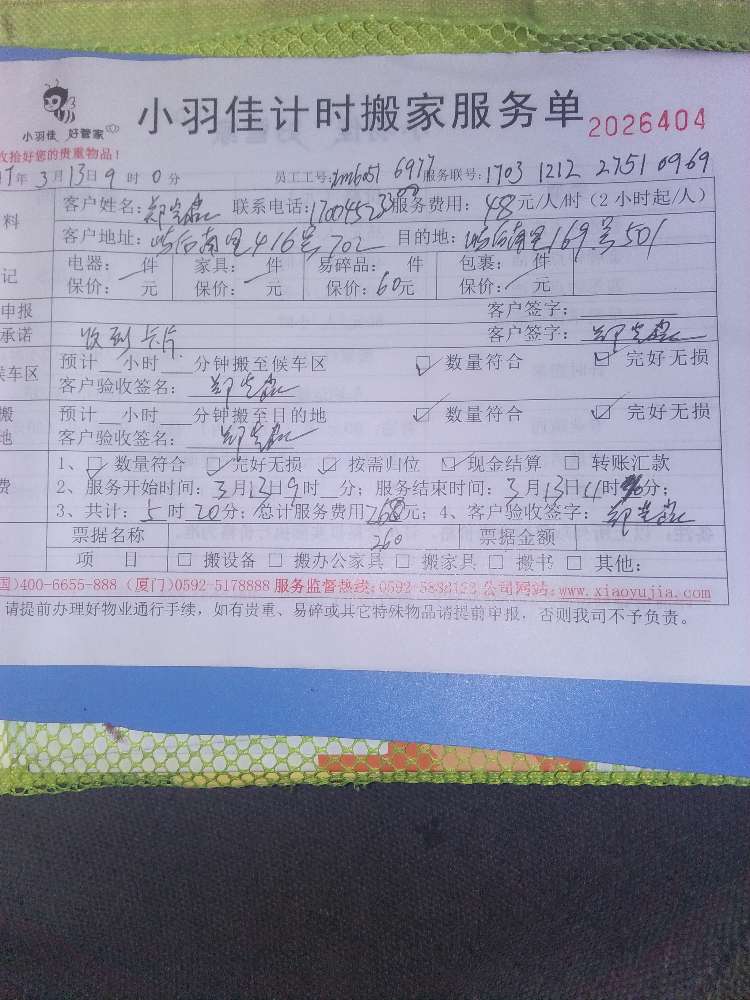 小羽佳计时搬家服务单 2026404
小羽佳 好管家
收拾好您的贵重物品！
年3月13日9时0分 员工工号： 6977 服务联号：1703 1212 2751 0969
料 客户姓名：郑 联系电话： 服务费用：48元/人/时（2小时起/人）
客户地址： 南里416号702 目的地： 南里169号501
记 电器： 件 家具： 件 易碎品： 件 包裹： 件
保价： 元 保价： 元 保价：60元 保价： 元
申报 客户签字：
承诺 收到卡片 客户签字：郑
候车区 预计 小时 分钟搬至候车区 数量符合 完好无损
客户验收签名：郑
搬 预计 小时 分钟搬至目的地 数量符合 完好无损
地 客户验收签名：郑
1、 数量符合 完好无损 按需归位 现金结算 转账汇款
费 2、服务开始时间：3月13日9时 分；服务结束时间：3月13日11时 分；
3、共计：5时20分；总计服务费用 元；4、客户验收签字：郑
260
票据名称 票据金额
项 目 搬设备 搬办公家具 搬家具 搬书 其他：
国)400-6655-888（厦门)0592-5178888 服务监督热线：0592- 公司网站：www.xiaoyujia.com
请提前办理好物业通行手续，如有贵重、易碎或其它特殊物品请提前申报，否则我司不予负责。